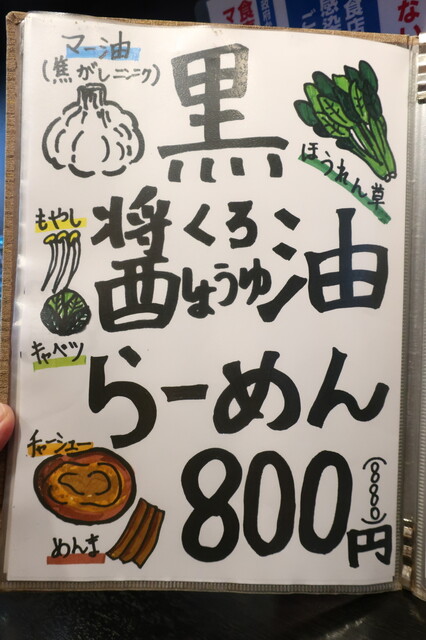 マー油
(焦がしニンニク)
黒
ほうれん草
醤油
くろ
しょうゆ
もやし
キャベツ
らーめん
チャーシュー
めんま
800円